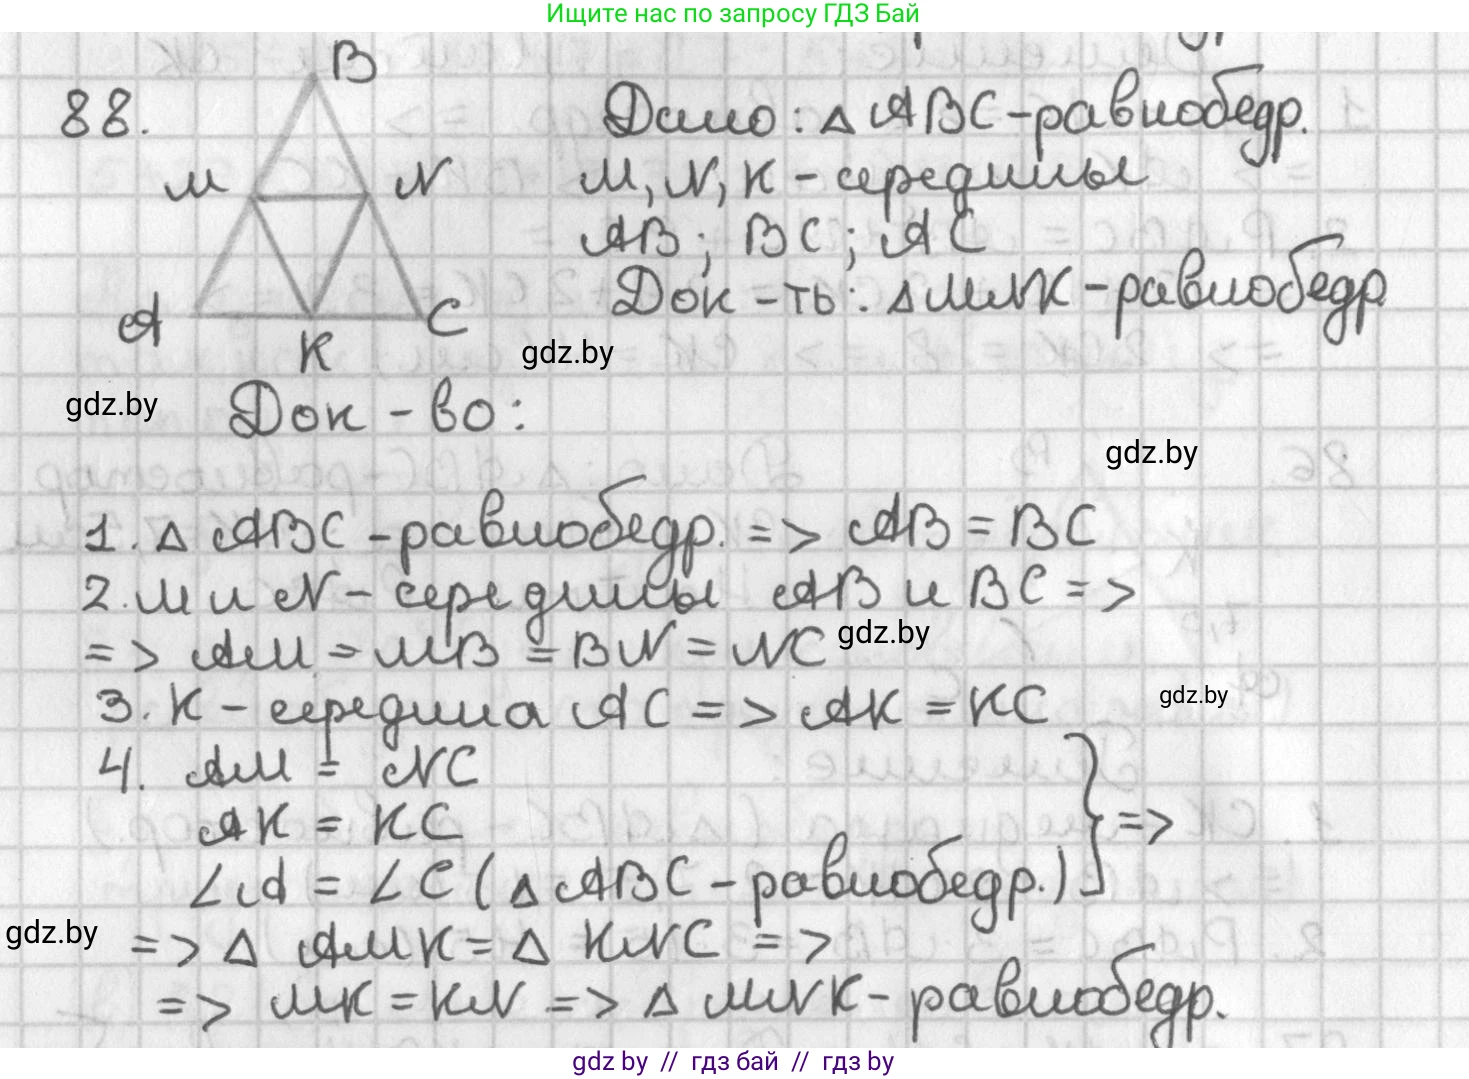 Ищите нас по запросу ГДЗ Бай
88.
B
M
N
A
K
C
Дано: △ ABC - равнобедр.
M, N, K - середины
AB; BC; AC
Док - ть: △ MNK - равнобедр
gdz.by
gdz.by
Док - во:
gdz.by
1. △ ABC - равнобедр. => AB = BC
2. M и N - середины AB и BC =>
=> AM = MB = BN = NC
gdz.by
3. K - середина AC => AK = KC
gdz.by
4. AM = NC
AK = KC
∠A = ∠C (△ ABC - равнобедр.) } =>
gdz.by
=> △ AMK = △ KNC =>
=> MK = KN => △ MNK - равнобедр.
gdz by // гдз бай // гдз by